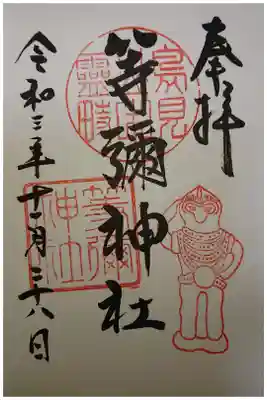 奉拝
鳥見
靈畤
等彌神社
等彌
神社
令和三年十一月二十八日